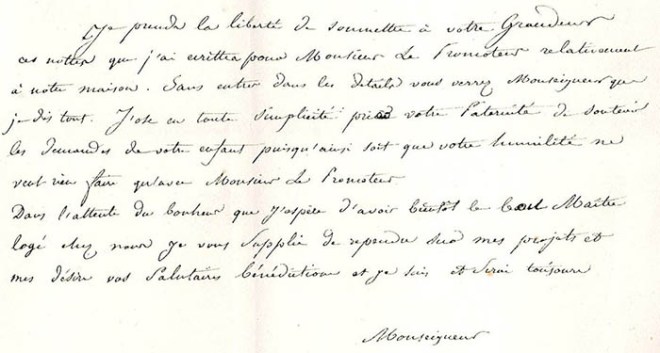 Je prends la liberté de soumettre à votre Grandeur
ces nottes que j'ai écrittes pour Monsieur Le Promoteur relativement
à notre maison. Sans entrer dans les details vous verrez Monseigneur que
je dis tout. J'ose en toute simplicité prier votre Paternité de soutenir
les demandes de votre enfant puisqu'ainsi soit que votre humilité ne
veut rien faire qu'avec Monsieur Le Promoteur
Dans l'attente du bonheur que j'espère d'avoir bientôt le Maître
logé chez nous je vous supplie de reprendre sur mes projets et
mes désirs vos Salutaires bénédictions et je suis et serai toujours
Monseigneur